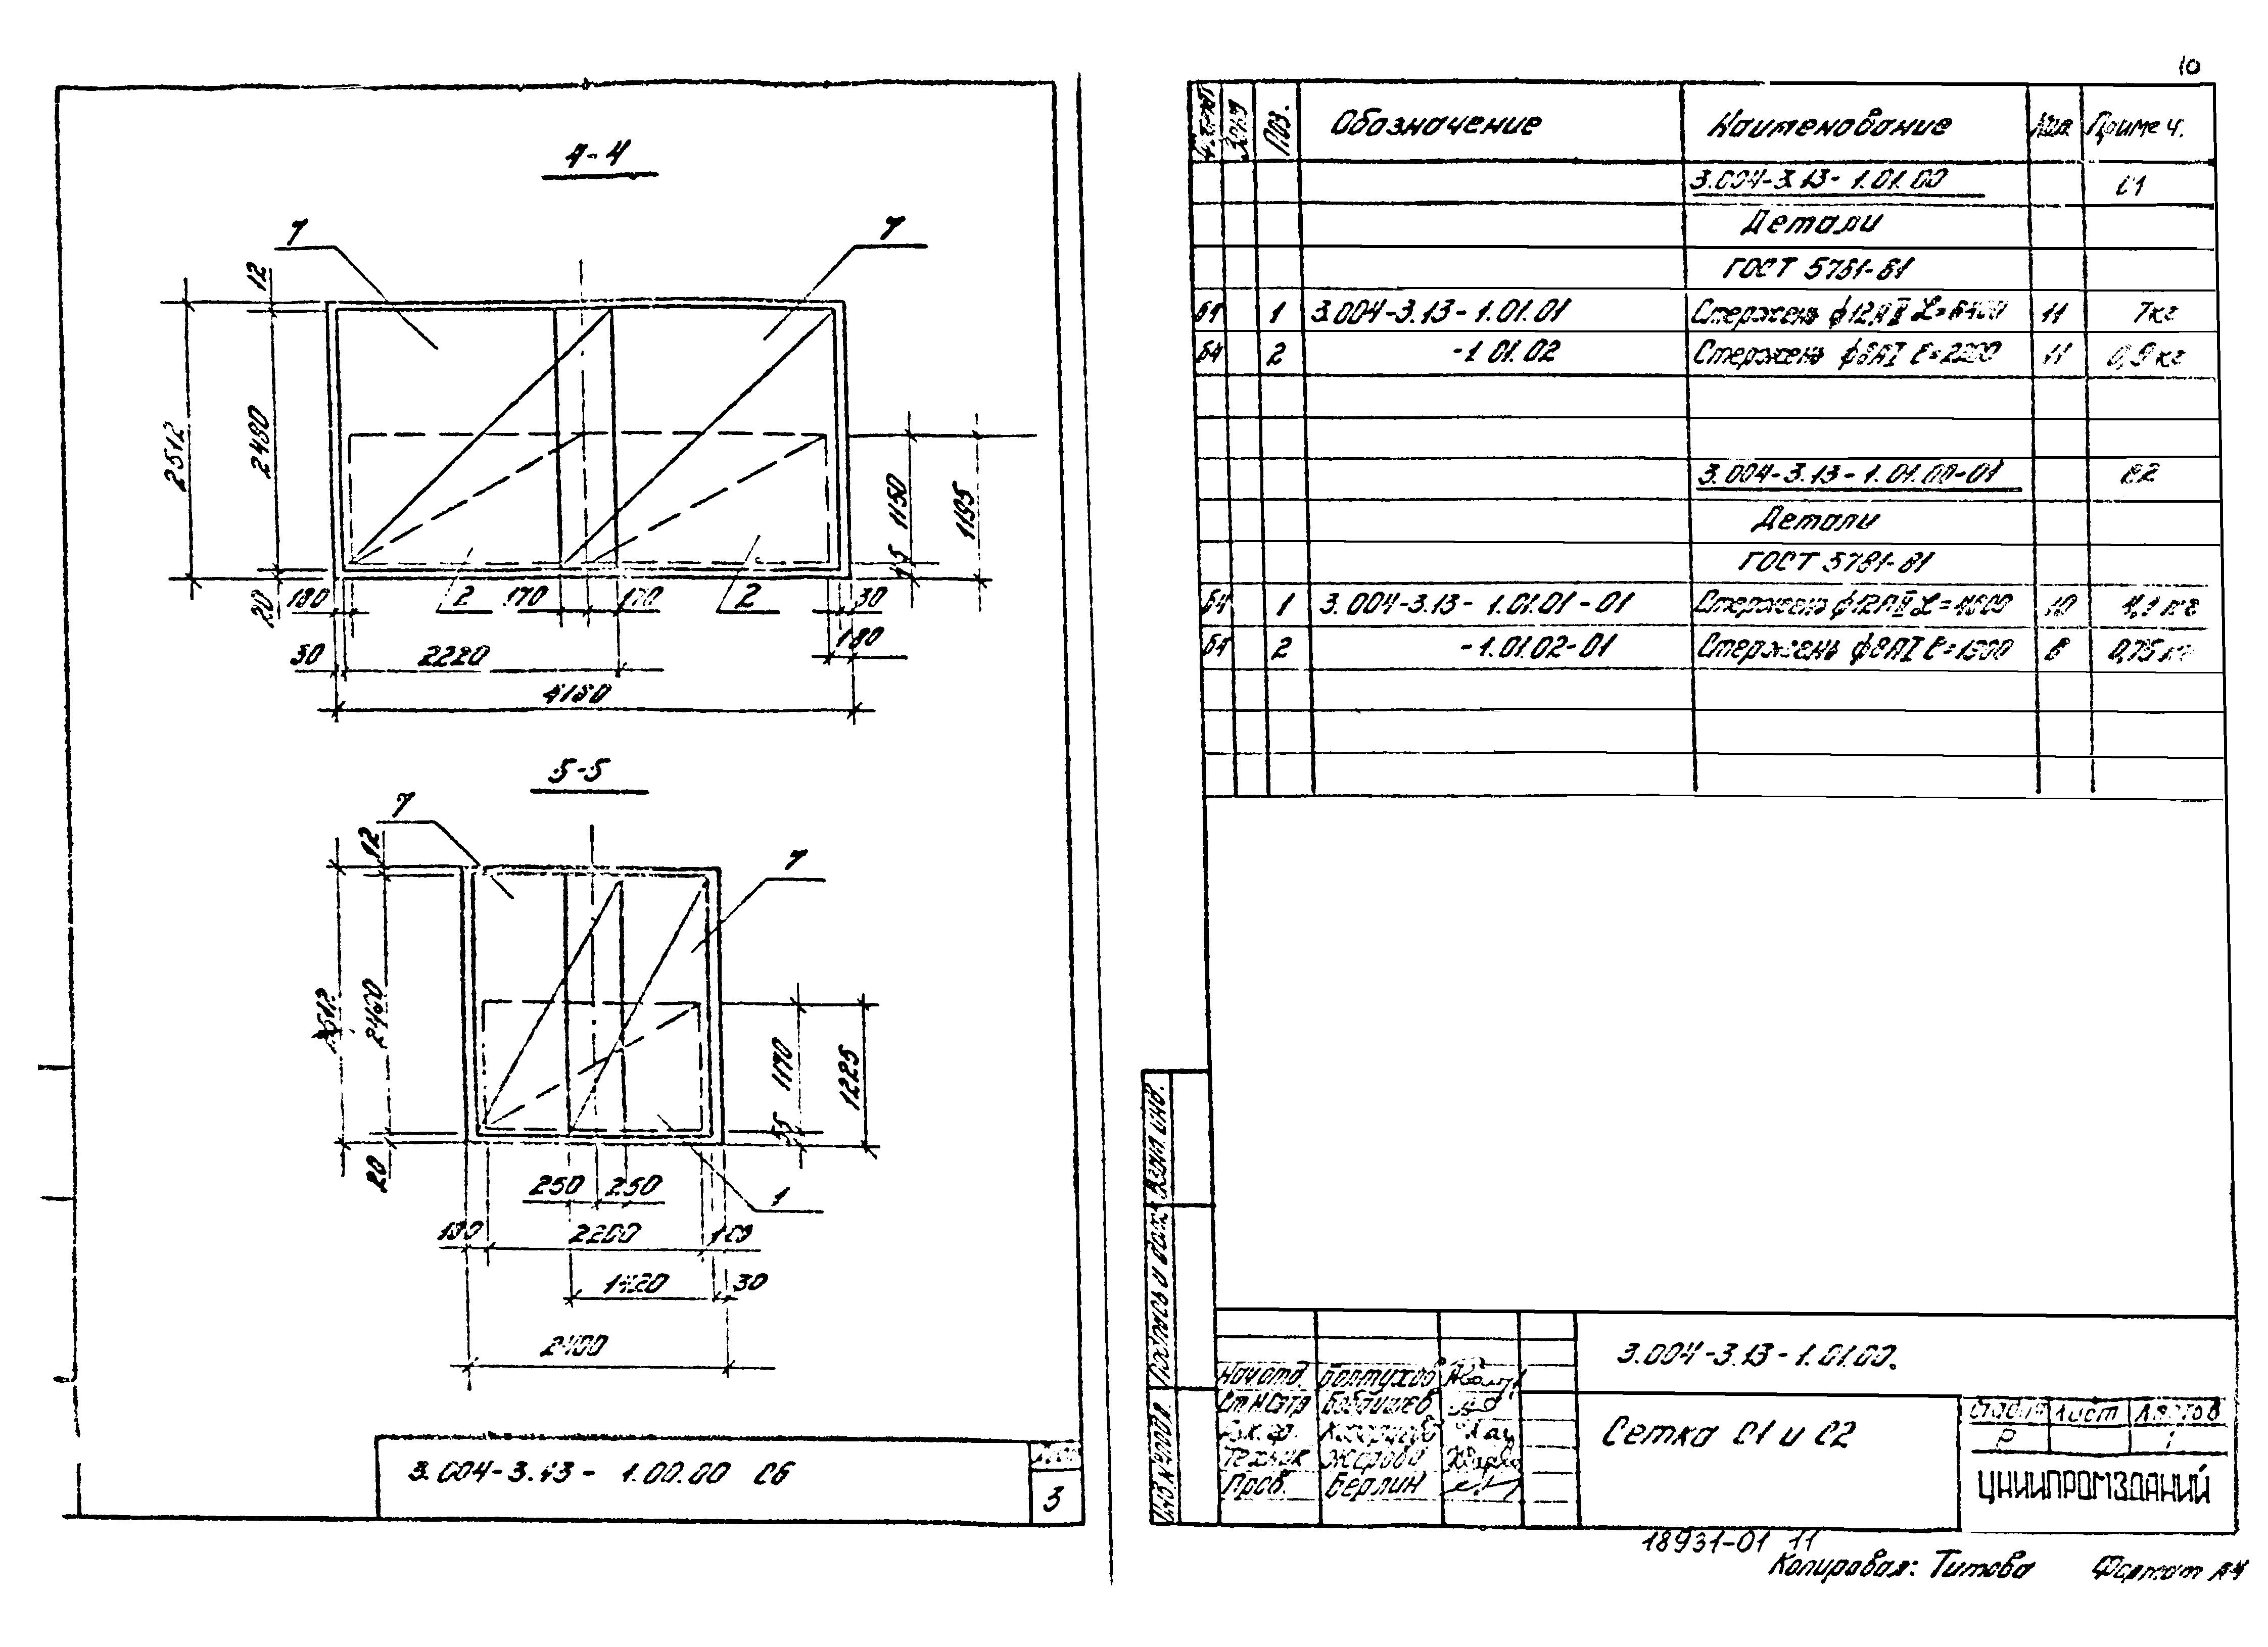 4-4
7
7
12
2512
2480
1150
1195
45
20
180
2
170
170
2
30
180
30
2220
4180
5-5
7
12
7
2460
1170
1225
55
20
250
250
1
180
2200
1420
30
2400
3.004-3.13- 1.00.00 СБ
3
10
Поз.
Обозначение
Наименование
Кол
Примеч.
3.004-3.13- 1.01.00
С1
Детали
ГОСТ 5781-81
б4 1 3.004-3.13-1.01.01 Стержень ф12АII 11 7кг
б4 2 -1.01.02 Стержень ф8АI ℓ=2200 11 0,9кг
3.004-3.13-1.01.00-01
С2
Детали
ГОСТ 5781-81
б4 1 3.004-3.13- 1.01.01-01 Стержень 10 4,1 кг
б4 2 -1.01.02-01 Стержень ф8АI 0,75 кг
Взам. инв.
Подпись и дата
Инв. № подл.
3.004-3.13-1.01.00.
Нач отд.
Техник
Пров. Берлин
Сетка С1 и С2
Стадия Лист Листов
Р 1
ЦНИИПРОМЗДАНИЙ
18931-01 11
Копировал: Титова Формат А4